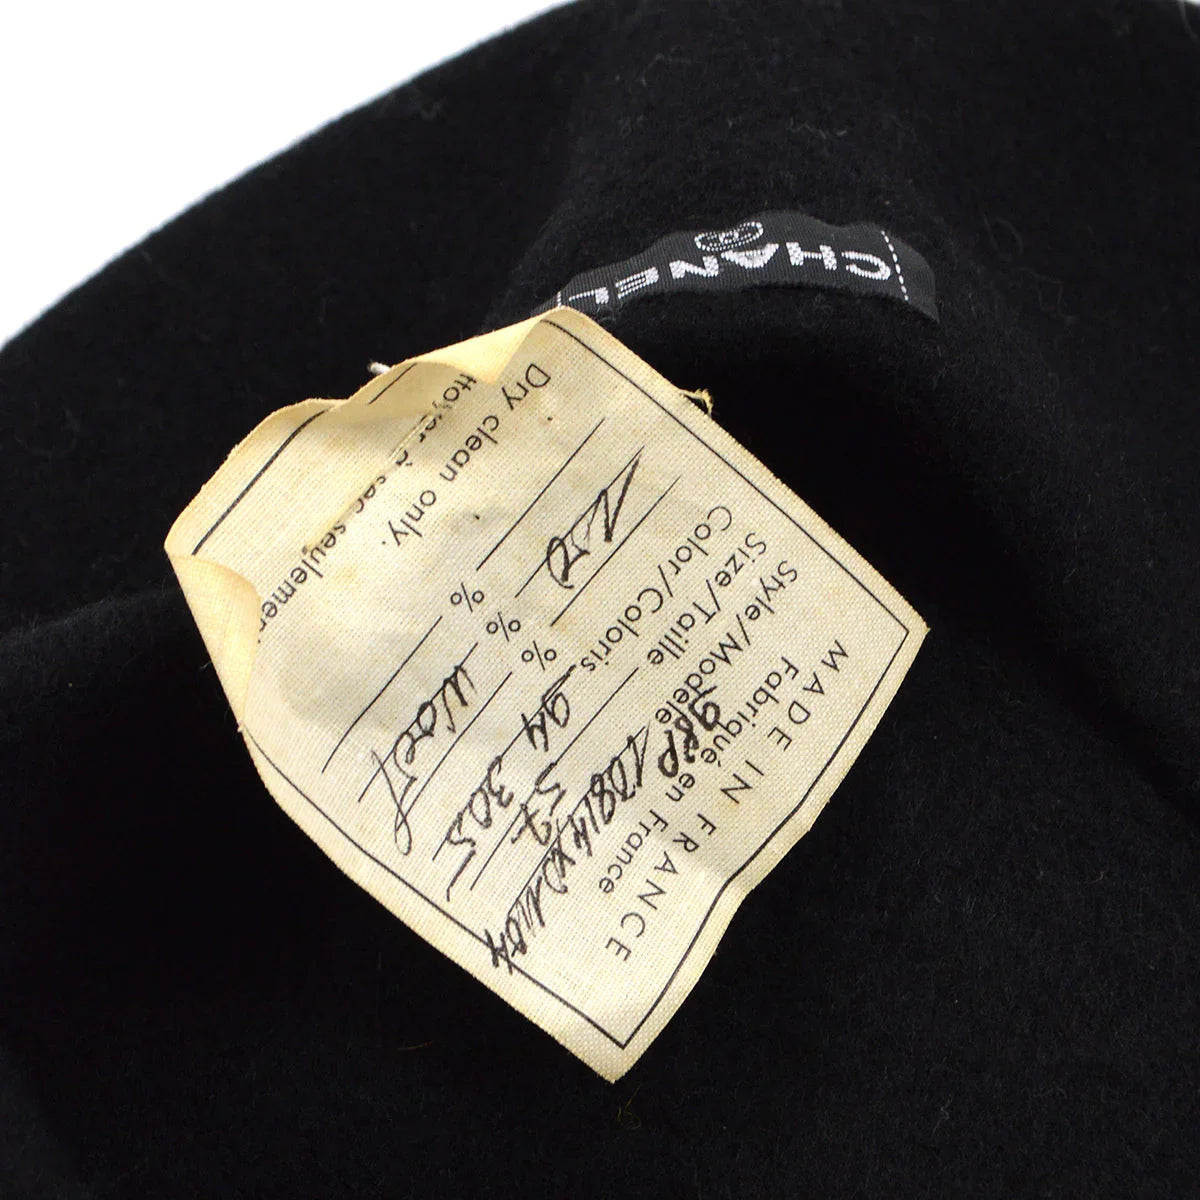 CHANEL
MADE IN FRANCE
Fabriqué en France
Style/Modèle 98P 10814X01104
Size/Taille 57
Color/Coloris 94305
100 %
%
%
Dry clean only.
à sec seulemen